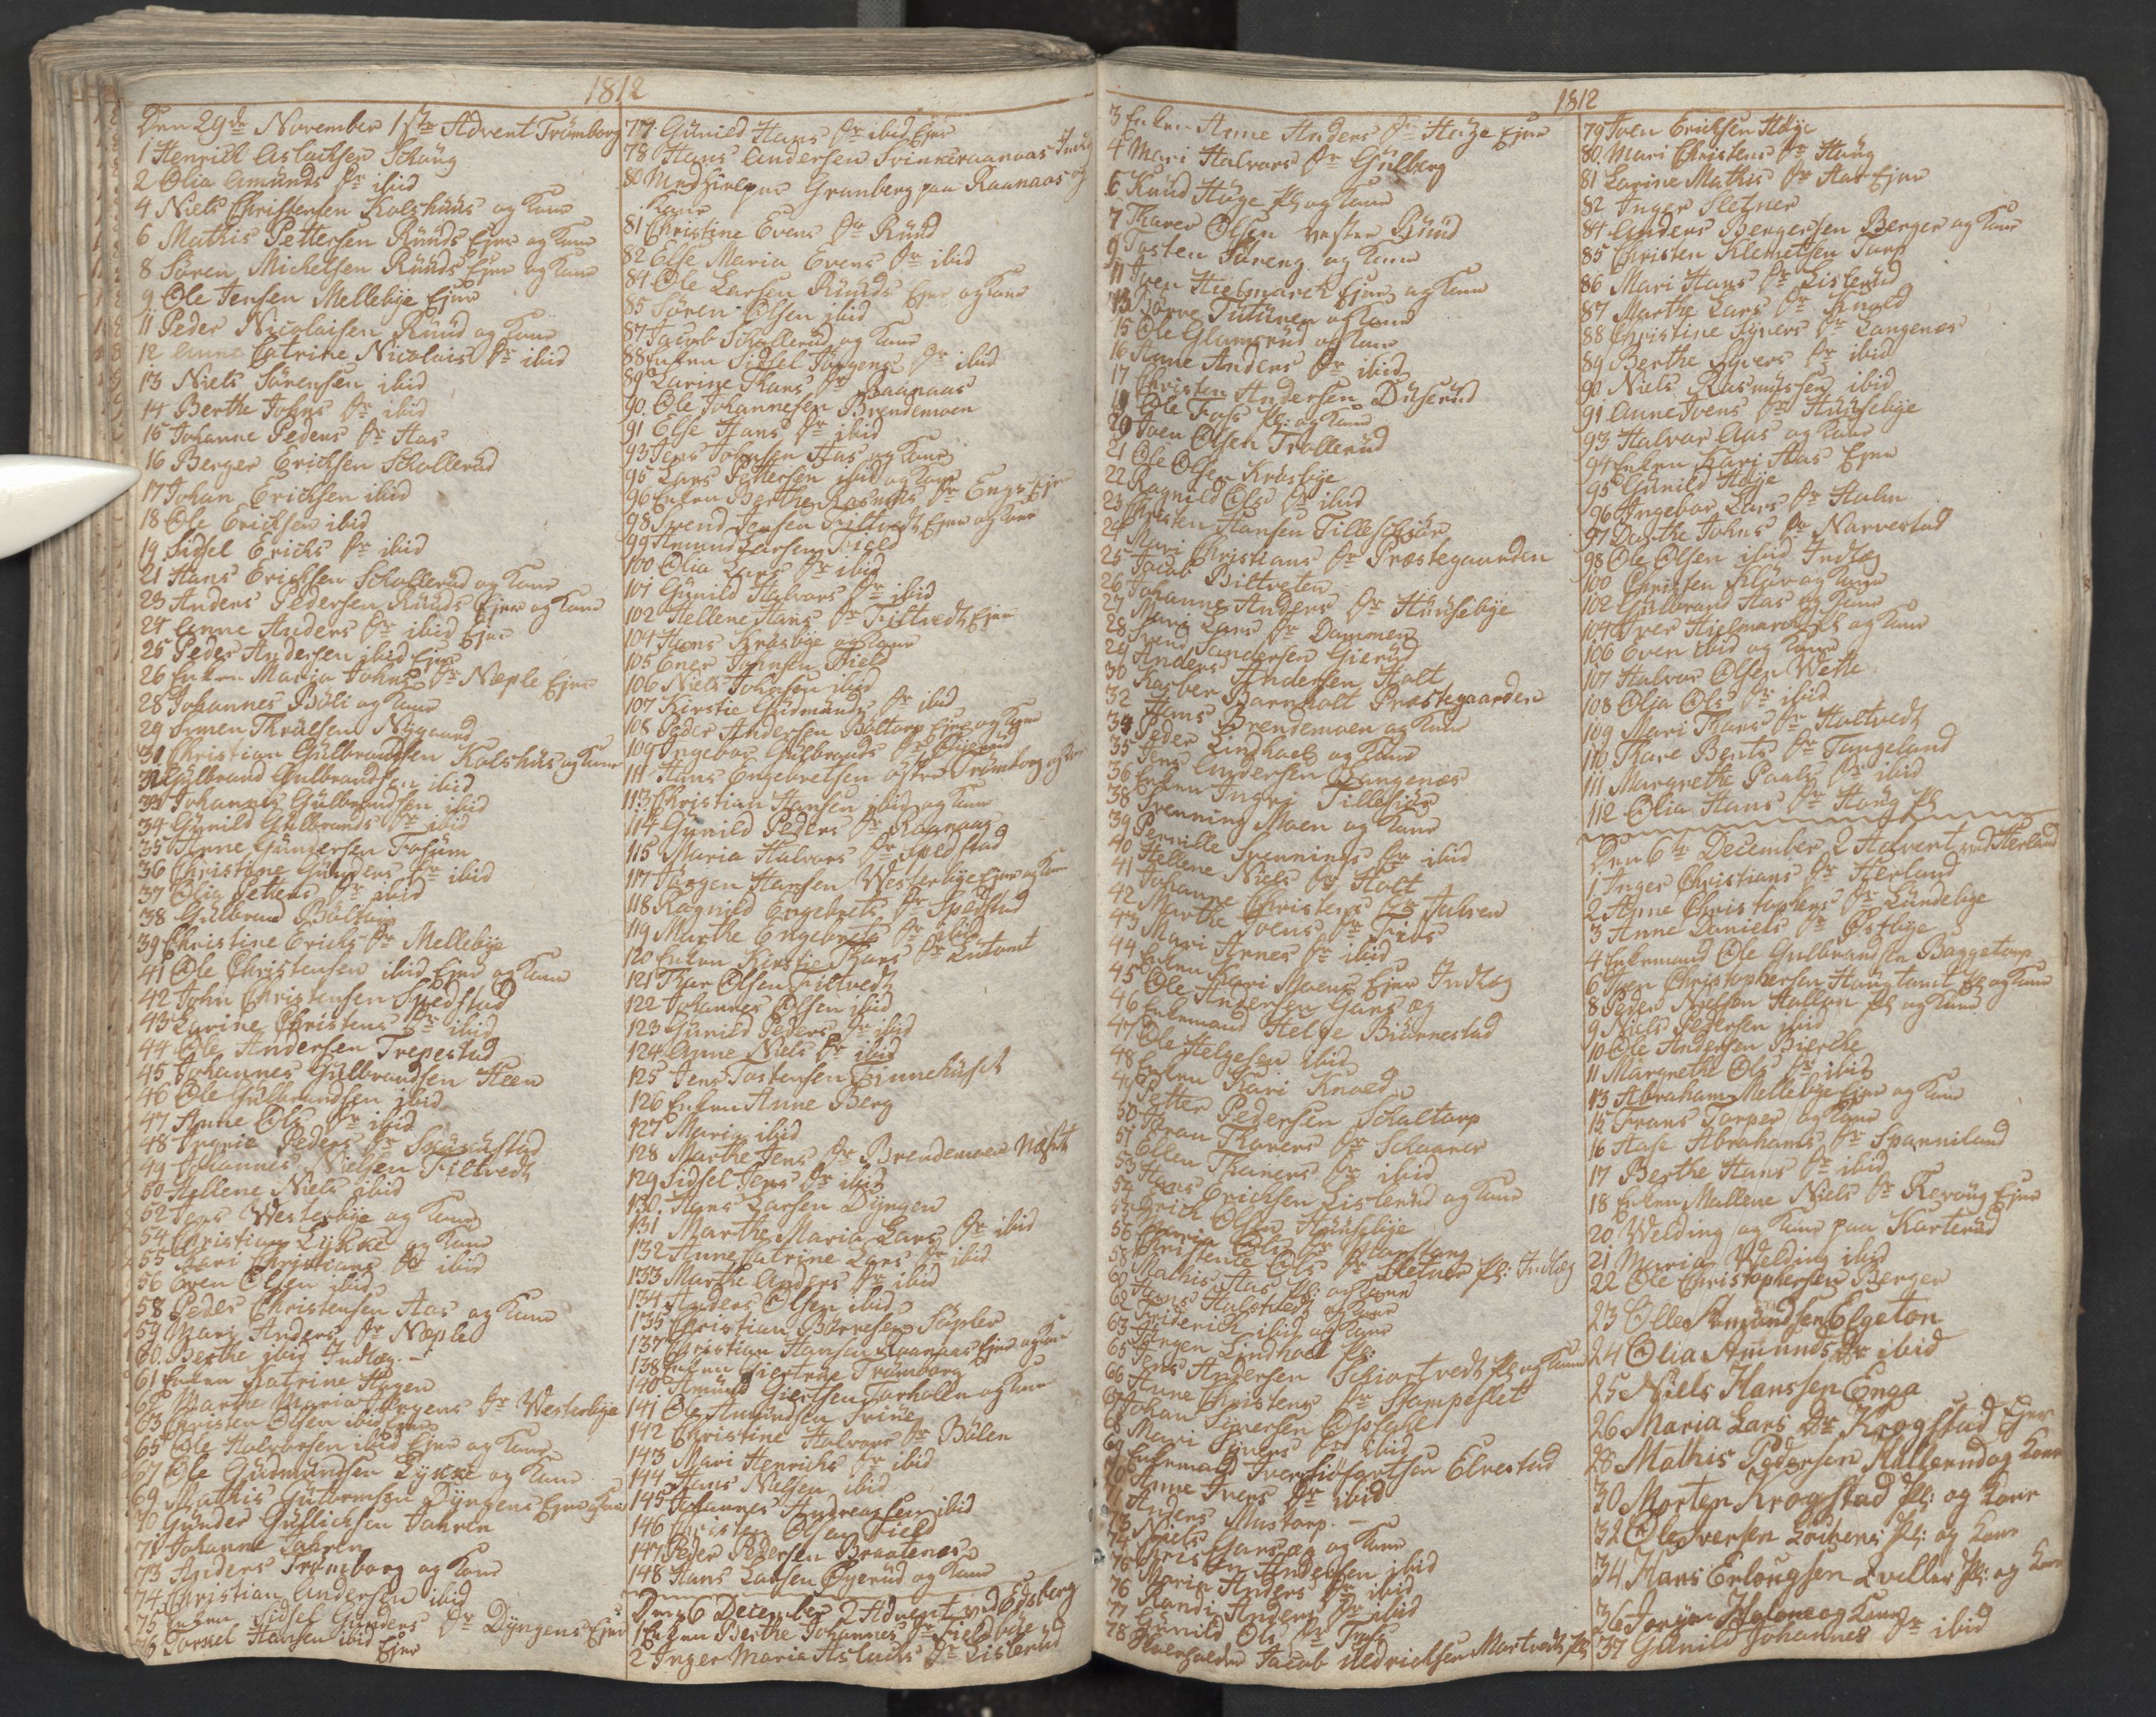 1812
Den 29de November 1ste Advent Trømborg
1 Henrich Aslachsen Schøug
2 Olia Amunds Dr ibid
4 Niels Christensen Kolshuus og Kone
6 Mathis Pettersen Ruuds Ejer og Kone
8 Søren Michelsen Ruuds Ejer og Kone
9 Ole Jensen Mellebye Ejer
11 Peder Nicolaisen Ruud og Kone
12 Anne Catrine Nicolais Dr ibid
13 Niels Sørensen ibid
14 Berthe Johns Dr ibid
15 Johanne Peders Dr Aas
16 Berger Erichsen Schollerud
17 Johan Erichsen ibid
18 Ole Erichsen ibid
19 Sidsel Erichs Dr ibid
21 Hans Erichsen Schollerud og Kone
23 Anders Pedersen Ruuds Ejer og Kone
24 Anne Anders Dr ibid Ejer
25 Peder Andersen ibid Ejer
26 Enken Maria Johns Dr Næple Ejer
28 Johannes Bøli og Kone
29 Simen Thrulsen Nygaard
31 Christian Gulbrandsen Kolshus og Kone
32 Gulbrand Gulbrandsen ibid
33 Johannes Gulbrandsen ibid
34 Gunild Gulbrands Dr ibid
35 Anne Gundersen Fosum
36 Christiane Gunders Dr ibid
37 Olia Dr ibid
38 Gulbrand Bøltorp
39 Christine Erichs Dr Mellebye
41 Ole Christensen ibid Ejer og Kone
42 John Christensen Spedstad
43 Larine Christens Dr ibid
44 Ole Andersen Trepestad
45 Johannes Gulbrandsen Heen
46 Ole Gulbrandsen ibid
47 Anne Ols Dr ibid
48 Peders Dr
49 Johannes Nielsen Filtvedt
50 Hellene Niels ibid
52 Jens Westerbye og Kone
54 Christian Lykke og Kone
55 Kari Christians Dr ibid
56 Even Olsen ibid
58 Peder Christensen Aas og Kone
59 Mari Anders Dr Næple
60 Berthe ibid Indlæg
61 Enken Katrine Hagen
62 Marthe Maria Jørgens Dr Westerbye
63 Christen Olsen ibid Ejer
65 Ole Halvorsen ibid Ejer og Kone
67 Ole Gudmundsen Lykke og Kone
69 Mathis Gulbrandsen Dyngens Ejer og Kone
70 Gunder Gullichsen Jahren
71 Johanne Jahren
73 Anders Trømborg og Kone
74 Christian Andersen ibid
75 Enken Sidsel Gunders Dr Dyngens Ejer
76 Torkel Hansen ibid Ejer
77 Gunild Hans Dr ibid Ejer
78 Hans Andersen Svinneraanaas Indlæg
80 Medhielper Grønberg paa Raanaas og
Kone
81 Christine Evens Dr Ruud
82 Else Maria Evens Dr ibid
84 Ole Larsen Ruuds Ejer og Kone
85 Søren Olsen ibid
87 Jacob Schollerud og Kone
88 Enken Sidsel Jørgens Dr ibid
89 Larine Thors Dr Raanaas
90 Ole Johannesen Brendemoen
91 Else Hans Dr ibid
93 Jens Johnsen Aas og Kone
95 Lars Pettersen ibid og Kone
96 Enken Berthe Rasmus Dr Engs Ejer
98 Svend Jensen Filtvedt Ejer og Kone
99 Amund Larsen Field
100 Olia Lars Dr ibid
101 Gunild Halvors Dr ibid
102 Hellene Hans Dr Filtvedt Ejer
104 Hans Krosbye og Kone
105 Ener Johnsen Field
106 Niels Johnsen ibid
107 Kirstie Gudmunds Dr ibid
108 Peder Andersen Bøltorp Ejer og Kone
109 Ingebor Gulbrands Dr Øyerud
111 Hans Engebretsen østre Trømborg og Kone
113 Christian Hansen ibid og Kone
114 Gunild Peders Dr Raanaas
115 Maria Halvors Dr Spedstad
117 Jørgen Hansen Westerbye Ejer og Kone
118 Ragnild Engebrets Dr Spedstad
119 Marthe Engebrets Dr ibid
120 Enken Kirstie Thors Dr Lutomt
121 Thor Olsen Filtvedt
122 Johannes Olsen ibid
123 Gunild Peders Dr ibid
124 Anne Niels Dr ibid
125 Jens Tostensen Finnehusch
126 Enken Anne Berg
127 Maria ibid
128 Marthe Jens Dr Brendemoen
129 Sidsel Jens Dr ibid
130 Hans Larsen Dyngen
131 Marthe Maria Lars Dr ibid
132 Anne Catrine Lars Dr ibid
133 Marthe Anders Dr ibid
134 Anders Olsen ibid
135 Christian Børresen Sæpler
137 Christian Hansen Raanaas Ejer og Kone
138 Enken Giertrue Trømborg
140 Amund Giertsen og Kone
141 Ole Amundsen
142 Christine Halvors Dr Bølen
143 Mari Henrichs Dr ibid
144 Hans Nielsen ibid
145 Johannes Andreassen ibid
146 Christen Olsen Field
147 Peder Pedersen Braatenes
148 Hans Larsen Øyerud og Kone
Den 6 December 2 Advent ved Edsberg
1 Enken Berthe Johannes Dr
2 Inger Maria Aslachs Dr Listerud
1812
3 Enken Anne Anders Dr Hauge Ejer
4 Mari Halvors Dr Gulberg
6 Knud Hauge Pl og Kone
7 Tharer Olsen vestre Ruud
9 Tosten og Kone
11 Iver Hielmarch Ejer og Kone
13 Tutunen og Kone
15 Ole Glomsrud og Kone
16 Anne Anders Dr ibid
17 Christen Andersen Duserud
19 Ole Foss Pl: og Kone
20 Joen Olsen Trollerud
21 Ole Olsen Krosbye
22 Ragnild Ols Dr ibid
23 Christen Hansen Tilleschiør
24 Mari Christians Dr Præstegaarden
25 Jacob Biltveten
26 Johanne Anders Dr Huusebye
27 Mari Lars Dr Dammen
28 Svend Andersen Gierud
29 Anders Andersen Holt
30 Karben Barnholt Præstegaarden
32 Hans Brendemoen og Kone
34 Peder Lindhoel og Kone
35 Jens Andersen Langenæs
36 Enken Ingri Tillesiør
38 Svenning Moen og Kone
39 Pernille Svennings Dr ibid
40 Hellene Niels Dr Holt
41 Johanne Christens Dr Jahren
42 Marthe Joens Dr
43 Mari Arnes Dr ibid
44 Enken Kari Moens Ejer Indlæg
45 Ole Andersen Gansæg
46 Enkemand Helge Biørnestad
47 Ole Helgesen ibid
48 Enken Kari Knoed
49 Petter Pedersen Schaltorp
50 Joran Tharers Dr Schaarer
51 Ellen Tharers Dr ibid
53 Hans Erichsen Listerud og Kone
54 Erich Olsen Huusebye
55 Maria Ols Dr
56 Christence Ols Dr Sletner Pl: Indlæg
58 Mathis Aas Pl: og Kone
60 Hans Halstvedt og Kone
62 Friderich ibid og Kone
63 Jørgen Lindhoel Pl:
65 Jens Andersen Schiortvedt Pl og Kone
66 Anne Christens Dr Stampeslet
67 Johan Siversen
68 Mari Syvers Dr ibid
69 Enkemand Elvestad
70 Anne Ivers Dr ibid
71 Anders Mustorp
73 Niels Gansæg og Kone
74 Christen Andersen ibid
75 Maria Anders Dr ibid
76 Randi Anders Dr ibid
77 Gunild Ols Dr Foss
78 Overholder Jacob Aldrichsen Mortvedt Pl
79 Joen Erichsen Høye
80 Mari Christens Dr Haug
81 Larine Mathis Dr Aas Ejer
82 Inger Sletner
84 Anders Bergersen Berger og Kone
85 Christen Klemetsen Torp
86 Mari Hans Dr Listerud
87 Marthe Lars Dr Knold
88 Christine Syvers Dr Langenæs
89 Berthe Syvers Dr ibid
90 Niels Rasmussen ibid
91 Anne Ivers Dr Huusebye
93 Halvor Aas og Kone
94 Enken Kari Aas Ejer
95 Gunild Høye
96 Ingebor Lars Dr Holm
97 Dorthe Johns Dr Narvestad
98 Ole Olsen ibid Indlæg
100 Christen Kløv og Kone
102 Gulbrand Aas og Kone
104 Iver Hielmarch Pl og Kone
106 Even ibid og Kone
107 Halvor Olsen Wethe
108 Olia Ols Dr ibid
109 Mari Thors Dr Holtvedt
110 Thore Bents Dr Tangeland
111 Margrethe Pauls Dr ibid
112 Olia Hans Dr Haug Pl
Den 6te December 2 Advent ved Herland
1 Inger Christians Dr Herland
2 Anne Christophers Dr Lundebye
3 Anne Daniels Dr Østbye
4 Enkemand Ole Gulbrandsen Borgetorp
6 Iver Christophersen Haugtomt Pl og Kone
8 Peder Nielsen Hallan Pl og Kone
9 Niels Pedersen ibid
10 Ole Andersen Bierche
11 Margrethe Ols Dr ibid
13 Abraham Mellebye Ejer og Kone
15 Frans Torper og Kone
16 Aase Abrahams Dr Spanniland
17 Berthe Hans Dr ibid
18 Enken Mallene Niels Dr Revoug Ejer
20 Welding og Kone paa Korterud
21 Maria Welding ibid
22 Ole Christophersen Berger
23 Olle Amundsen Elgeton
24 Olia Amunds Dr ibid
25 Niels Hanssen Enga
26 Maria Lars Dr Krogstad Ejer
28 Mathis Pedersen Hallerud og Kone
30 Morten Krogstad Pl: og Kone
32 Ole Iversen Pl: og Kone
34 Hans Erlougsen Qviller Pl: og Kone
36 og Kone
37 Gunild Johannes Dr ibid